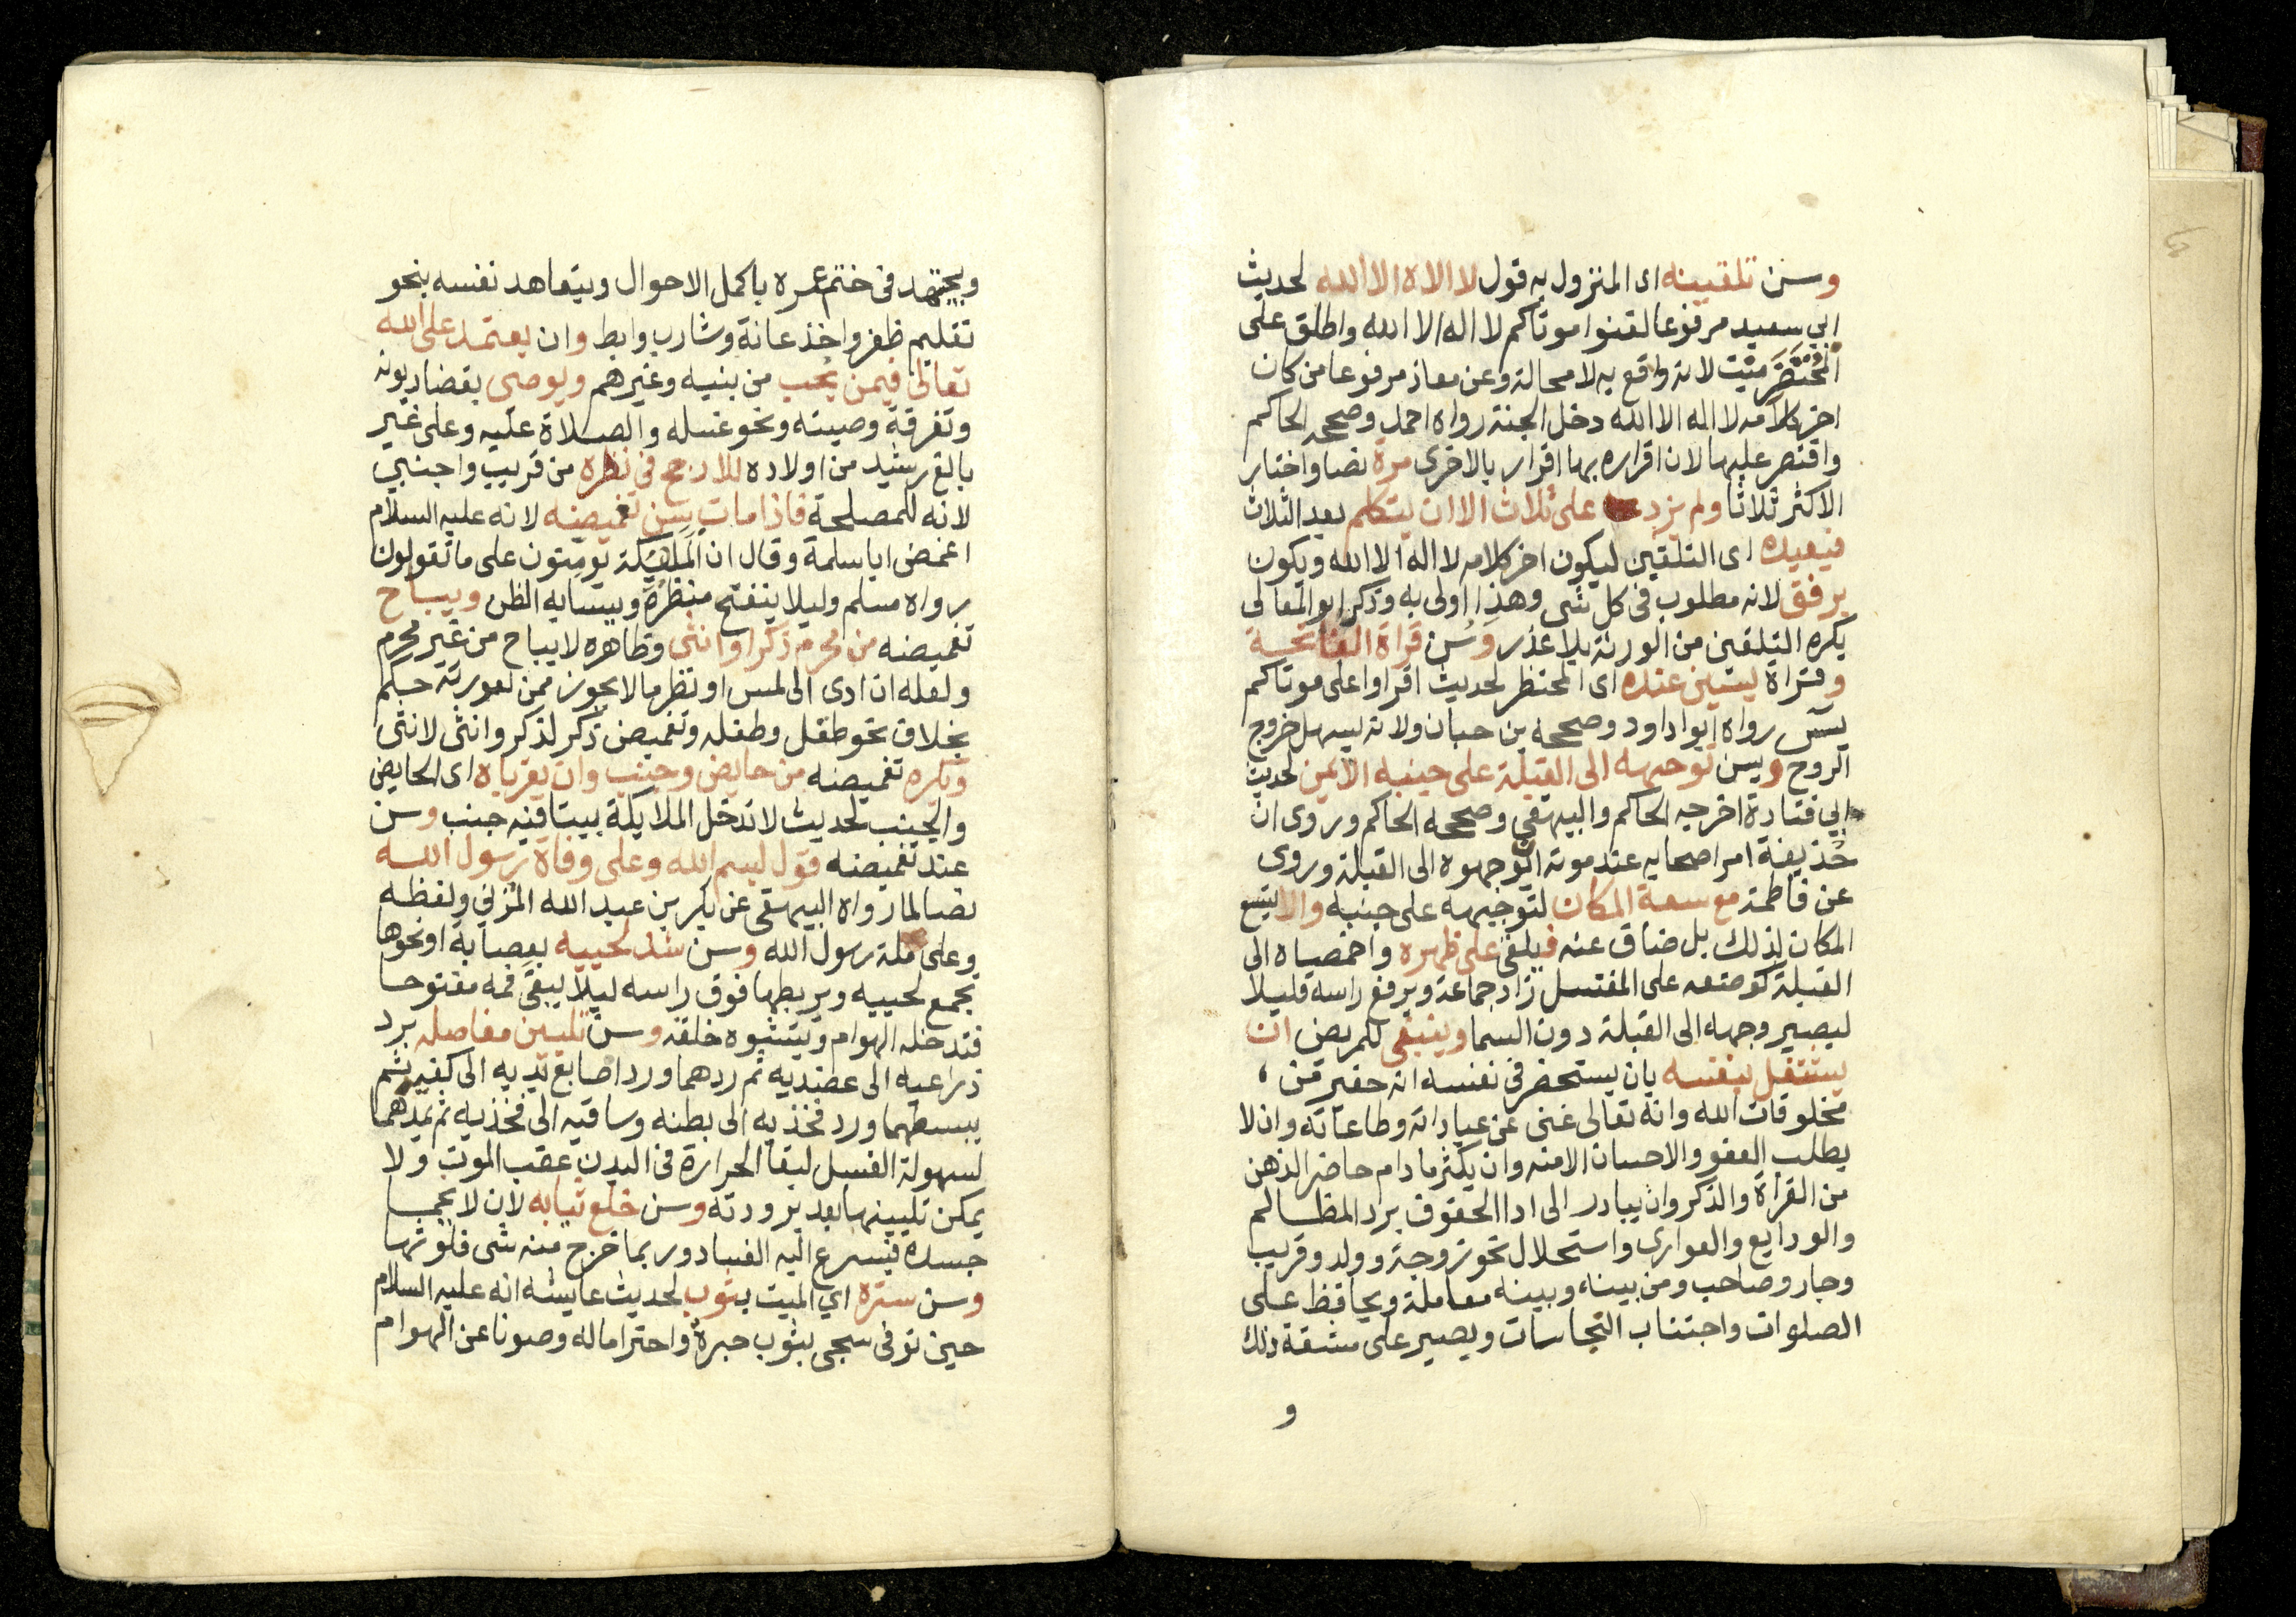 وسن تلقينه اى المنزول به قول لا الاه الا الله لحديث
ابي سعيد مرفوعا لقنوا موتاكم لا اله الا الله واطلق على
المحتضر ميت لانه واقع به لا محالة وعن معاذ مرفوعا من كان
اخر كلامه لا اله الا الله دخل الجنة رواه احمد وصححه الحاكم
واقتصر عليها لان اقراره بها اقرار بالاخرى مرة نصا واختار
الاكثر ثلاثا ولم يزد على ثلاث الا ان يتكلم بعد الثلاث
فيعيده اى التلقين ليكون اخر كلامه لا اله الا الله ويكون
برفق لانه مطلوب فى كل شى وهذا اولى به وذكر ابو المعالى
يكره التلقين من الورثة بلا عذر وسن قراة الفاتحة
وقراة ليسين عنده اى المحتظر لحديث اقراوا على موتاكم
يسن رواه ابوا داود وصححه بن حبان ولانه ليسهل خروج
الروح ويسن توجيهه الى القبلة على جنبه الايمن لحديث
ابي قتادة اخرجه الحاكم والبيهقي وصححه الحاكم وروى ان
حذيفة امر اصحابه عند موته ان يوجهوه الى القبلة وروى
عن فاطمة مع سعة المكان لتوجيهه على جنبه والا يتسع
المكان لذلك بل ضاق عنه فيلقى على ظهره واخمصاه الى
القبلة كوضعه على المغتسل زاد جماعة ويرفع راسه قليلا
ليصير وجهه الى القبلة دون السما وينبغى للمريض ان
يشتغل بنفسه بان يستحضر فى نفسه انه حقير من
مخلوقات الله وانه تعالى غنى عن عباداته وطاعاته وان لا
يطلب العفو والاحسان الا منه وان يكثر ما دام حاضر الذهن
من القراة والذكر وان يبادر الى ادا الحقوق برد المظالم
والودايع والعوارى واستحلال نحو زوجة وولد وقريب
وجار وصاحب ومن بينه وبينه معاملة ويحافظ على
الصلوات واجتناب النجاسات ويصير على مشقة ذلك
و
ويجتهد فى ختم عمره باكمل الاحوال ويتعاهد نفسه بنحو
تقليم ظفر واخذ عانة وشارب وابط وان يعتمد على الله
تعالى فيمن يحب من بنيه وغيرهم ويوصى بقضا ديونه
وتفرقة وصيته ونحو غسله والصلاة عليه وعلى غير
بالغ رشيد من اولاده للارجح فى نظره من قريب واجنبي
لانه للمصلحة فاذا مات سن تغميضه لانه عليه السلام
اغمض ابا سلمة وقال ان المليكة يومنون على ما تقولون
رواه مسلم وليلا ينفتح منظره ويسا به الظن ويباح
تغميضه من محرم ذكرا وانثى وظاهره لا يباح من غير محرم
ولعله ان ادى الى لمس او نظر ما لا يجوز ممن لعورته حكم
بخلاف نحو طفل وطفله وتغميض ذكر لذكر وانثى لانثى
ويكره تغميضه من حايض وجنب وان يقرباه اى الحايض
والجنب لحديث لا تدخل الملايكة بيتا فيه جنب وسن
عند تغميضه قول لبسم الله وعلى وفاة رسول الله
نصا لما رواه البيهقى عن بكر بن عبد الله المزني ولفظه
وعلى ملة رسول الله وسن شد لحييه بعصابة او نحوها
تجمع لحييه ويربطها فوق راسه ليلا يبقى فمه مفتوحا
فتدخله الهوام ويتشوه خلقه وسن تليين مفاصله برد
ذراعيه الى عضديه ثم ردهما ورد اصابع يديه الى كفيه ثم
يبسطهما ورد فخذيه الى بطنه وساقيه الى فخذيه ثم يمدهما
لسهولة الغسل لبقا الحرارة فى البدن عقب الموت ولا
يمكن تليينها بعد برودته وسن خلع ثيابه لان لا يحمى
جسده فيسرع اليه الفساد وربما خرج منه شى فلوثها
وسن ستره اي الميت بثوب لحديث عايشه انه عليه السلام
حين توفى سجى بثوب حبره واحتراما له وصونا عن الهوام